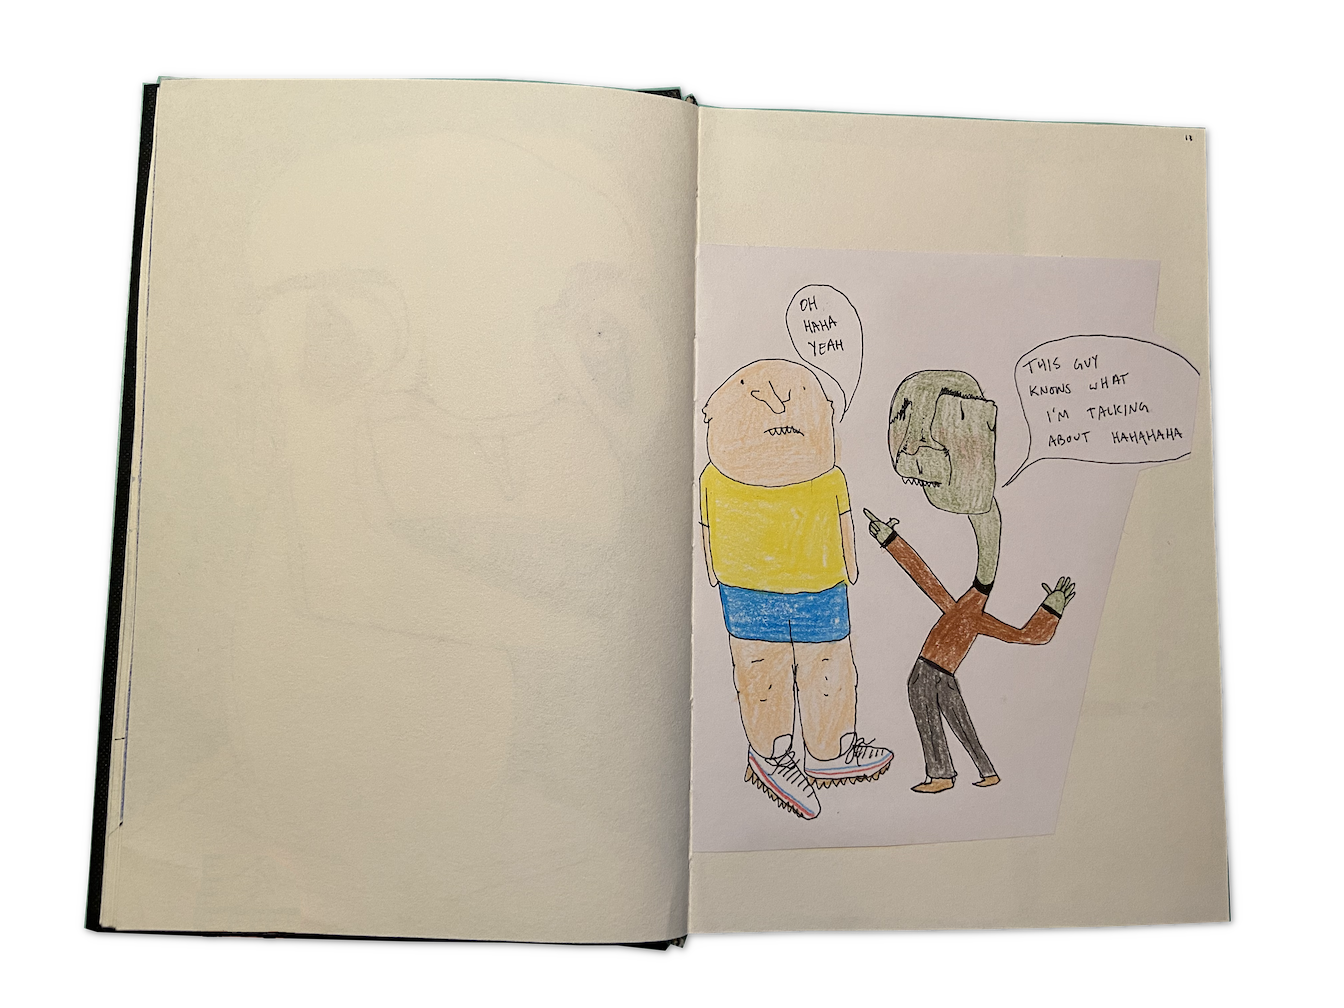 18
OH
HAHA
YEAH
THIS GUY
KNOWS WHAT
I'M TALKING
ABOUT HAHAHAHA